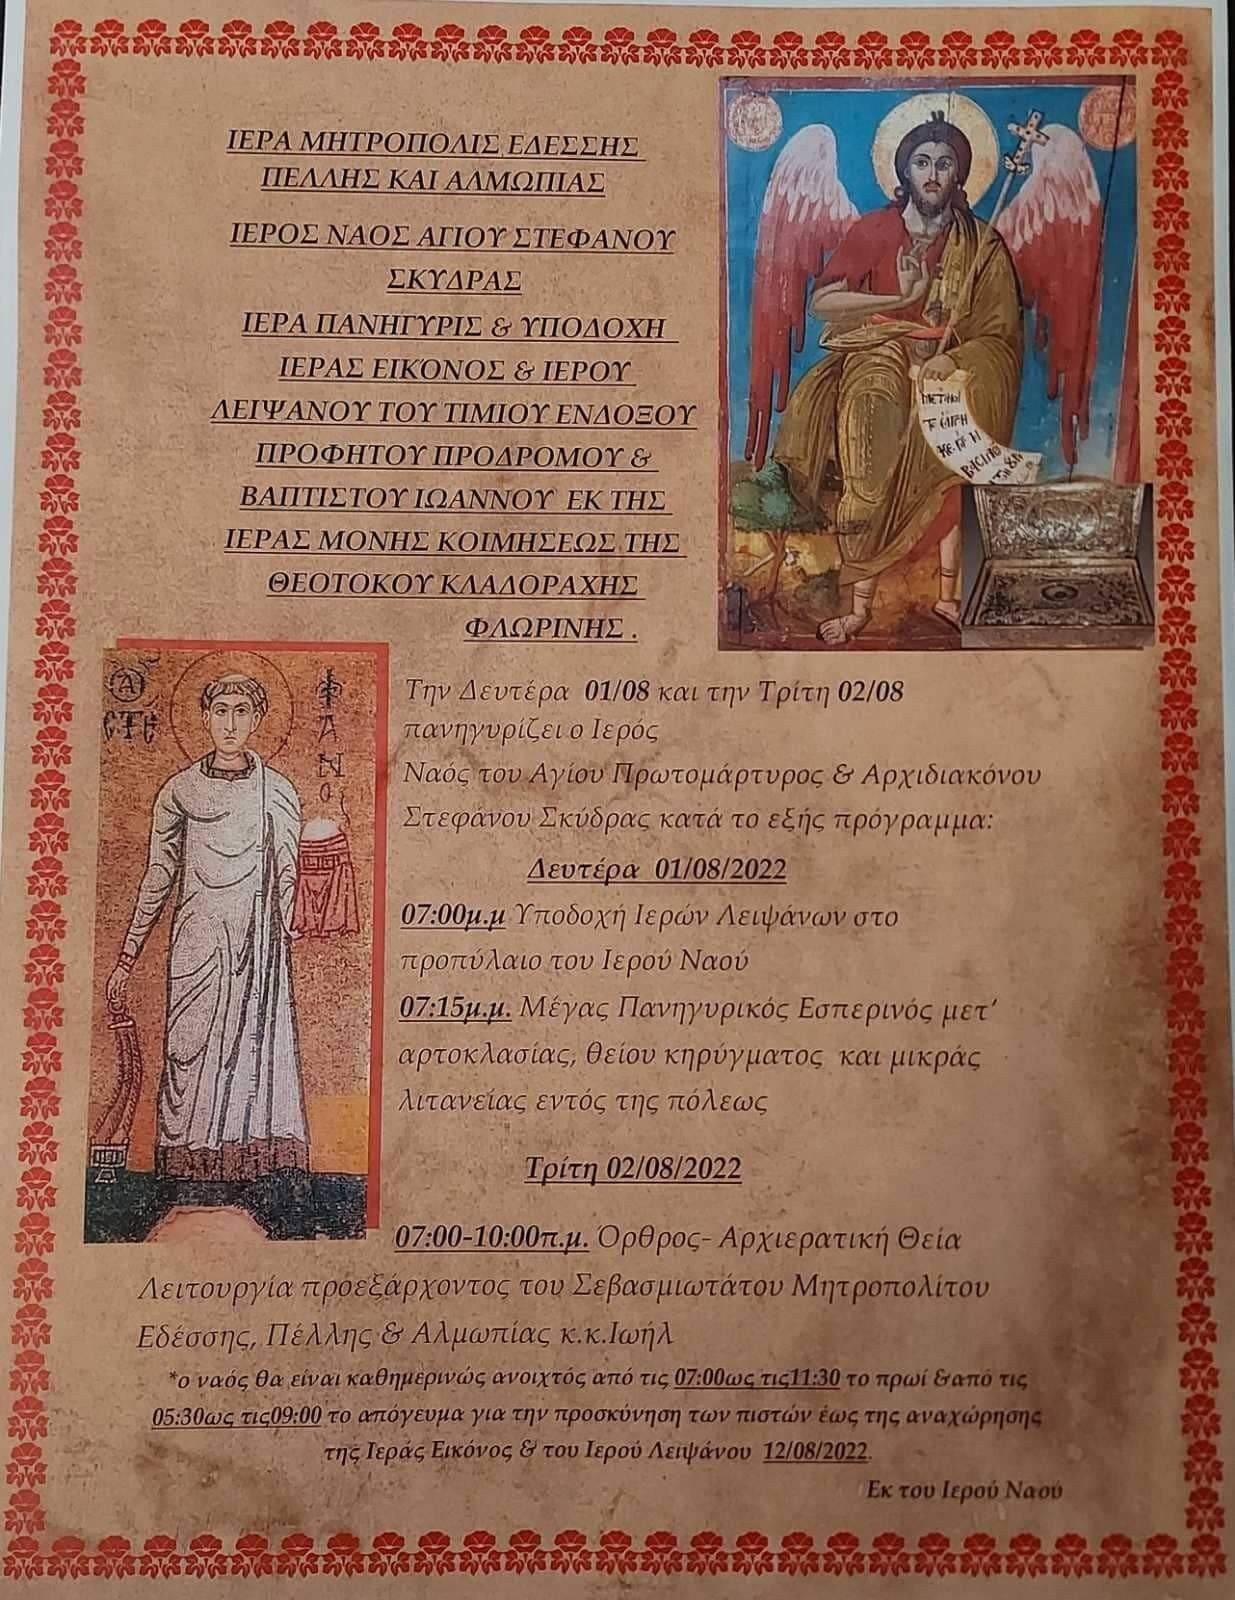 ΙΕΡΑ ΜΗΤΡΟΠΟΛΙΣ ΕΔΕΣΣΗΣ
ΠΕΛΛΗΣ ΚΑΙ ΑΛΜΩΠΙΑΣ
ΙΕΡΟΣ ΝΑΟΣ ΑΓΙΟΥ ΣΤΕΦΑΝΟΥ
ΣΚΥΔΡΑΣ
ΙΕΡΑ ΠΑΝΗΓΥΡΙΣ & ΥΠΟΔΟΧΗ
ΙΕΡΑΣ ΕΙΚΟΝΟΣ & ΙΕΡΟΥ
ΛΕΙΨΑΝΟΥ ΤΟΥ ΤΙΜΙΟΥ ΕΝΔΟΞΟΥ
ΠΡΟΦΗΤΟΥ ΠΡΟΔΡΟΜΟΥ &
ΒΑΠΤΙΣΤΟΥ ΙΩΑΝΝΟΥ ΕΚ ΤΗΣ
ΙΕΡΑΣ ΜΟΝΗΣ ΚΟΙΜΗΣΕΩΣ ΤΗΣ
ΘΕΟΤΟΚΟΥ ΚΛΑΔΟΡΑΧΗΣ
ΦΛΩΡΙΝΗΣ .
Την Δευτέρα 01/08 και την Τρίτη 02/08
πανηγυρίζει ο Ιερός
Ναός του Αγίου Πρωτομάρτυρος & Αρχιδιακόνου
Στεφάνου Σκύδρας κατά το εξής πρόγραμμα:
Δευτέρα 01/08/2022
07:00μ.μ Υποδοχή Ιερών Λειψάνων στο
προπύλαιο του Ιερού Ναού
07:15μ.μ. Μέγας Πανηγυρικός Εσπερινός μετ’
αρτοκλασίας, θείου κηρύγματος και μικράς
λιτανείας εντός της πόλεως
Τρίτη 02/08/2022
07:00-10:00π.μ. Όρθρος- Αρχιερατική Θεία
Λειτουργία προεξάρχοντος του Σεβασμιωτάτου Μητροπολίτου
Εδέσσης, Πέλλης & Αλμωπίας κ.κ.Ιωήλ
*ο ναός θα είναι καθημερινώς ανοιχτός από τις 07:00ως τις11:30 το πρωί &από τις
05:30ως τις09:00 το απόγευμα για την προσκύνηση των πιστών έως της αναχώρησης
της Ιεράς Εικόνος & του Ιερού Λειψάνου 12/08/2022.
Εκ του Ιερού Ναού